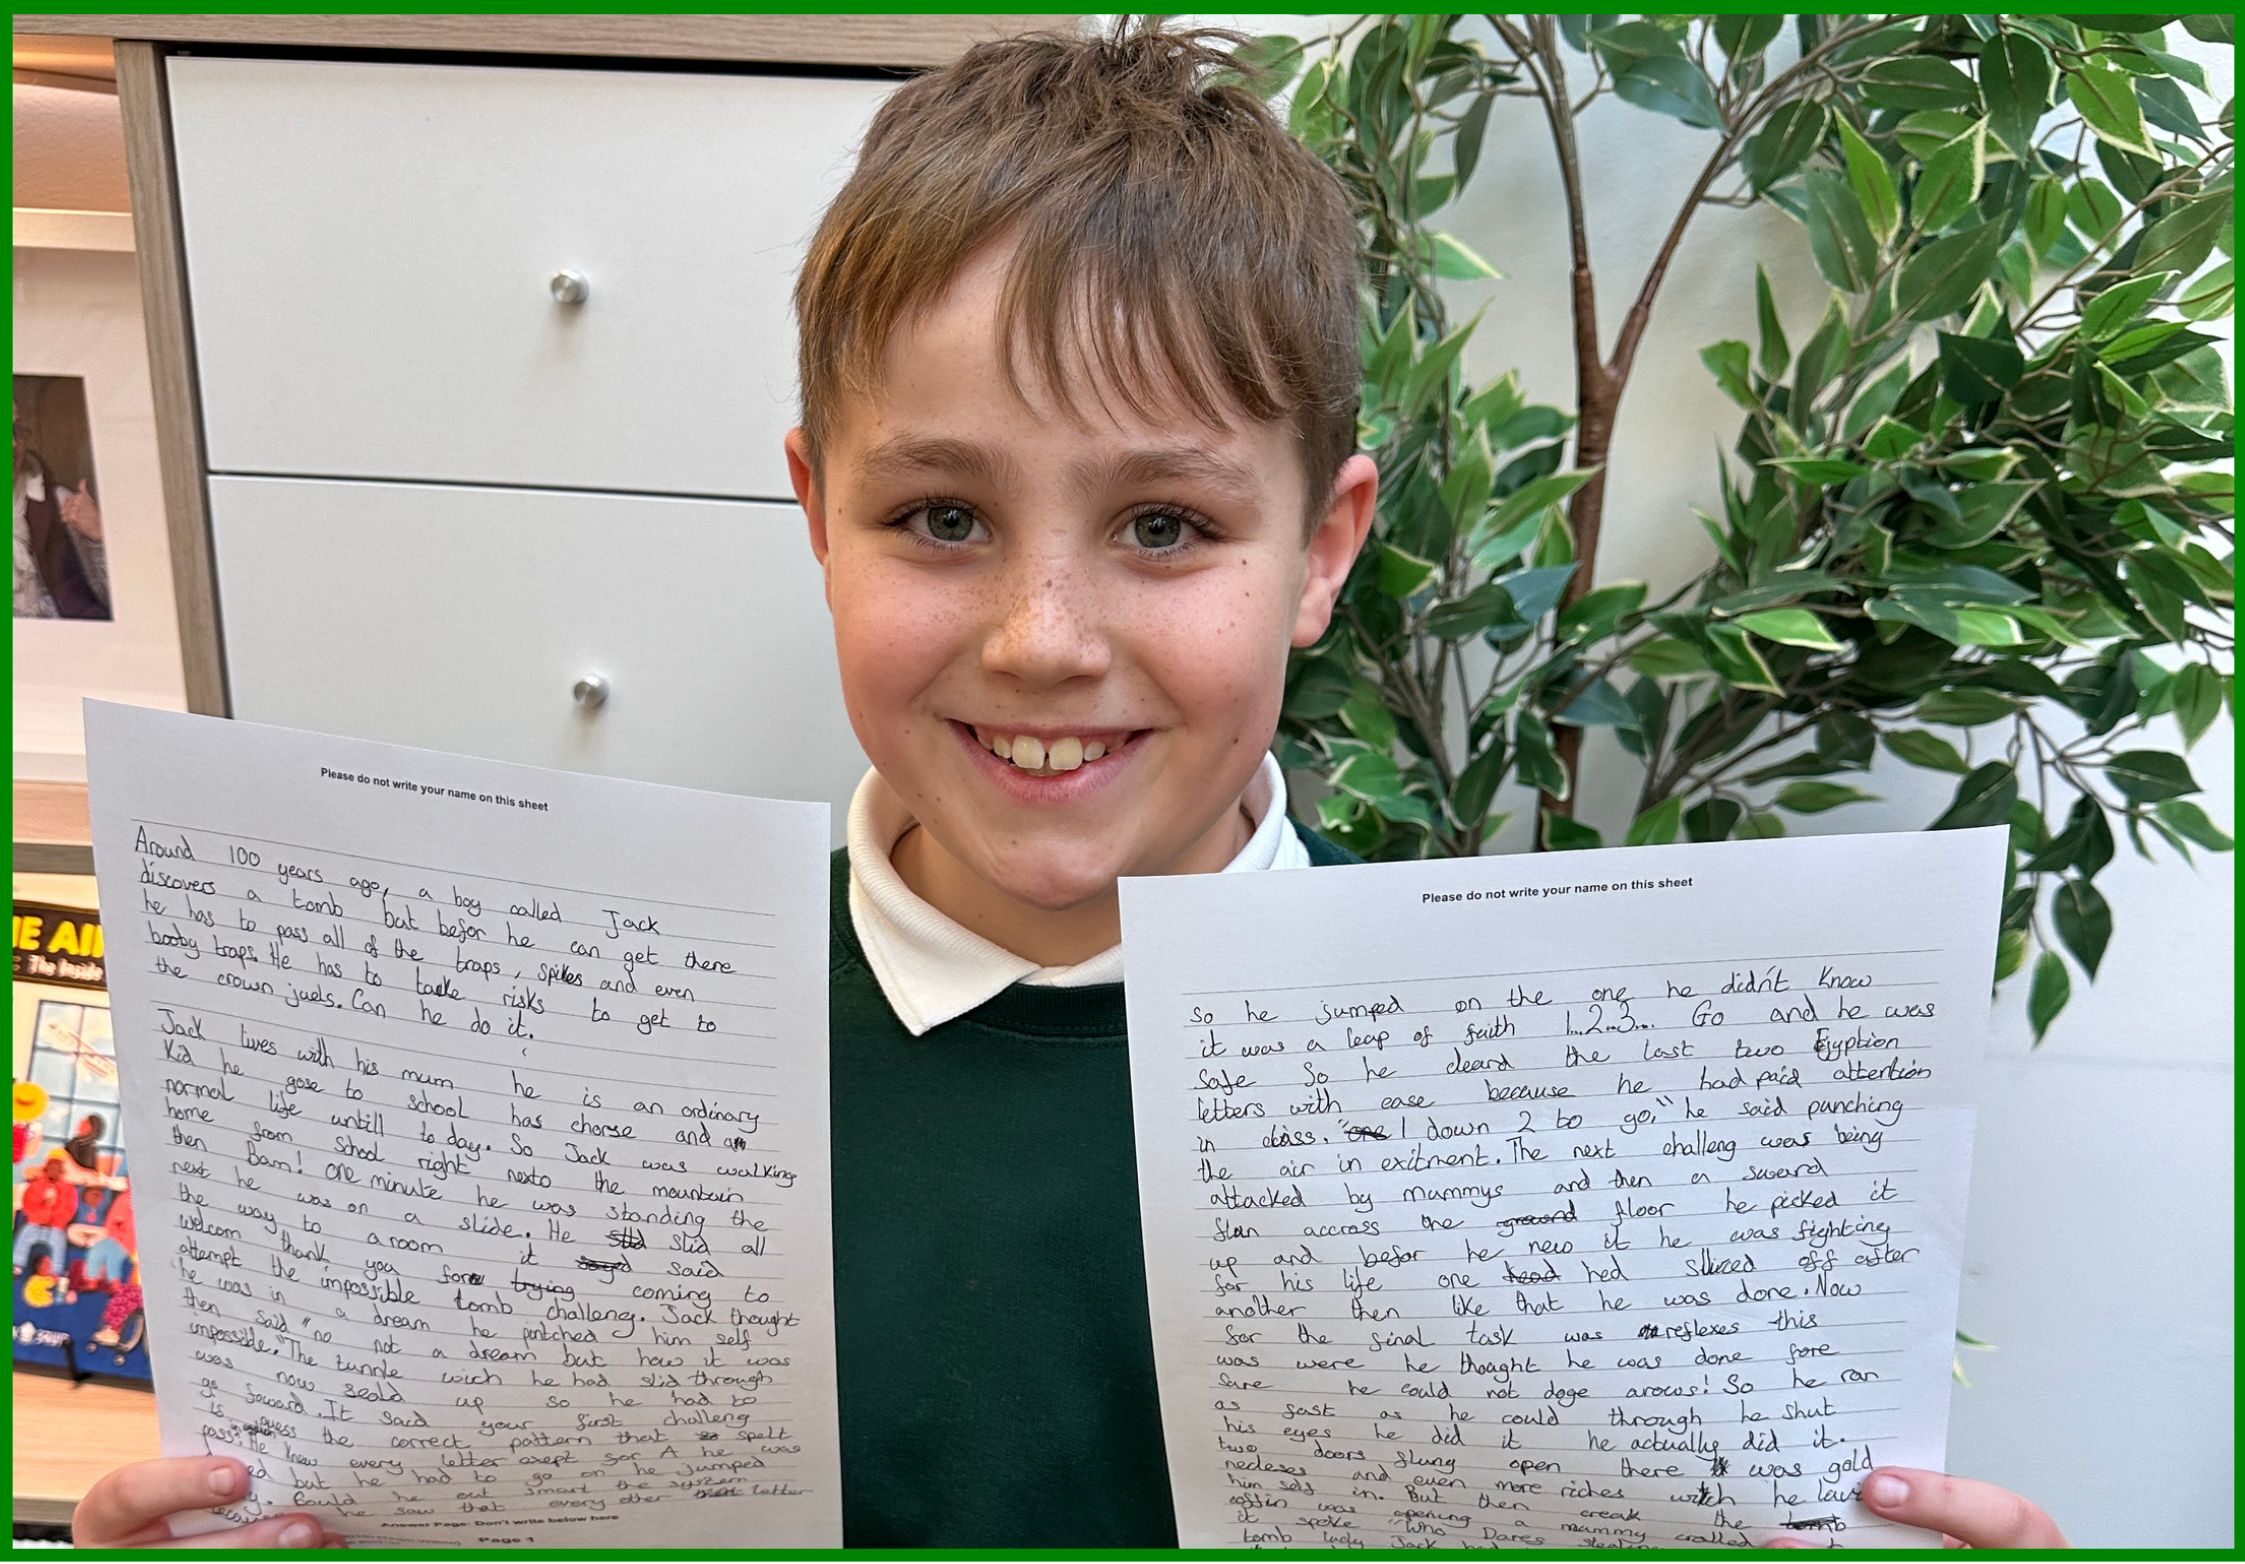 Please do not write your name on this sheet
Around 100 years ago, a boy called Jack
discovers a tomb but befor he can get there
he has to pass all of the traps, spikes and even
booby traps. He has to take risks to get to
the crown juels. Can he do it.
Jack lives with his mum he is an ordinary
Kid he gose to school has chorse and an
normal life untill to day. So Jack was walking
home from school right nexto the mountain
then Bam! one minute he was standing the
next he was on a slide. He slid all
the way to a room it said
welcom thank you for trying coming to
attempt the impossible tomb challeng. Jack thought
he was in a dream he pintched him self
then said "no not a dream but how it was
impossible." The tunnle wich he had slid through
was now seald up so he had to
go foward. It said your first challeng
is guess the correct pattern that spelt
pass. He knew every letter exept for A he was
but he had to go on he jumped
Could he out smart the system
he saw that every other letter
Answer Page: Don't write below here
Page 1
THE AI
The Inside
Please do not write your name on this sheet
so he jumped on the one he didn't know
it was a leap of faith 1...2...3... Go and he was
safe So he cleard the last two Egyption
letters with ease because he had paid attention
in class. "one 1 down 2 to go," he said punching
the air in exitment. The next challeng was being
attacked by mummys and then a sword
flan accross the ground floor he picked it
up and befor he new it he was fighting
for his life one head hed sliced off after
another then like that he was done. Now
for the final task was reflexes this
was were he thoaght he was done fore
sare he could not doge arows! So he ran
as fast as he could through he shut
his eyes he did it he actually did it.
two doors flung open there was gold
necleses and even more riches witch he
him self in. But then creak the tomb
coffin was opening a mummy cralled
it spoke "Who Dares
tomb Jack